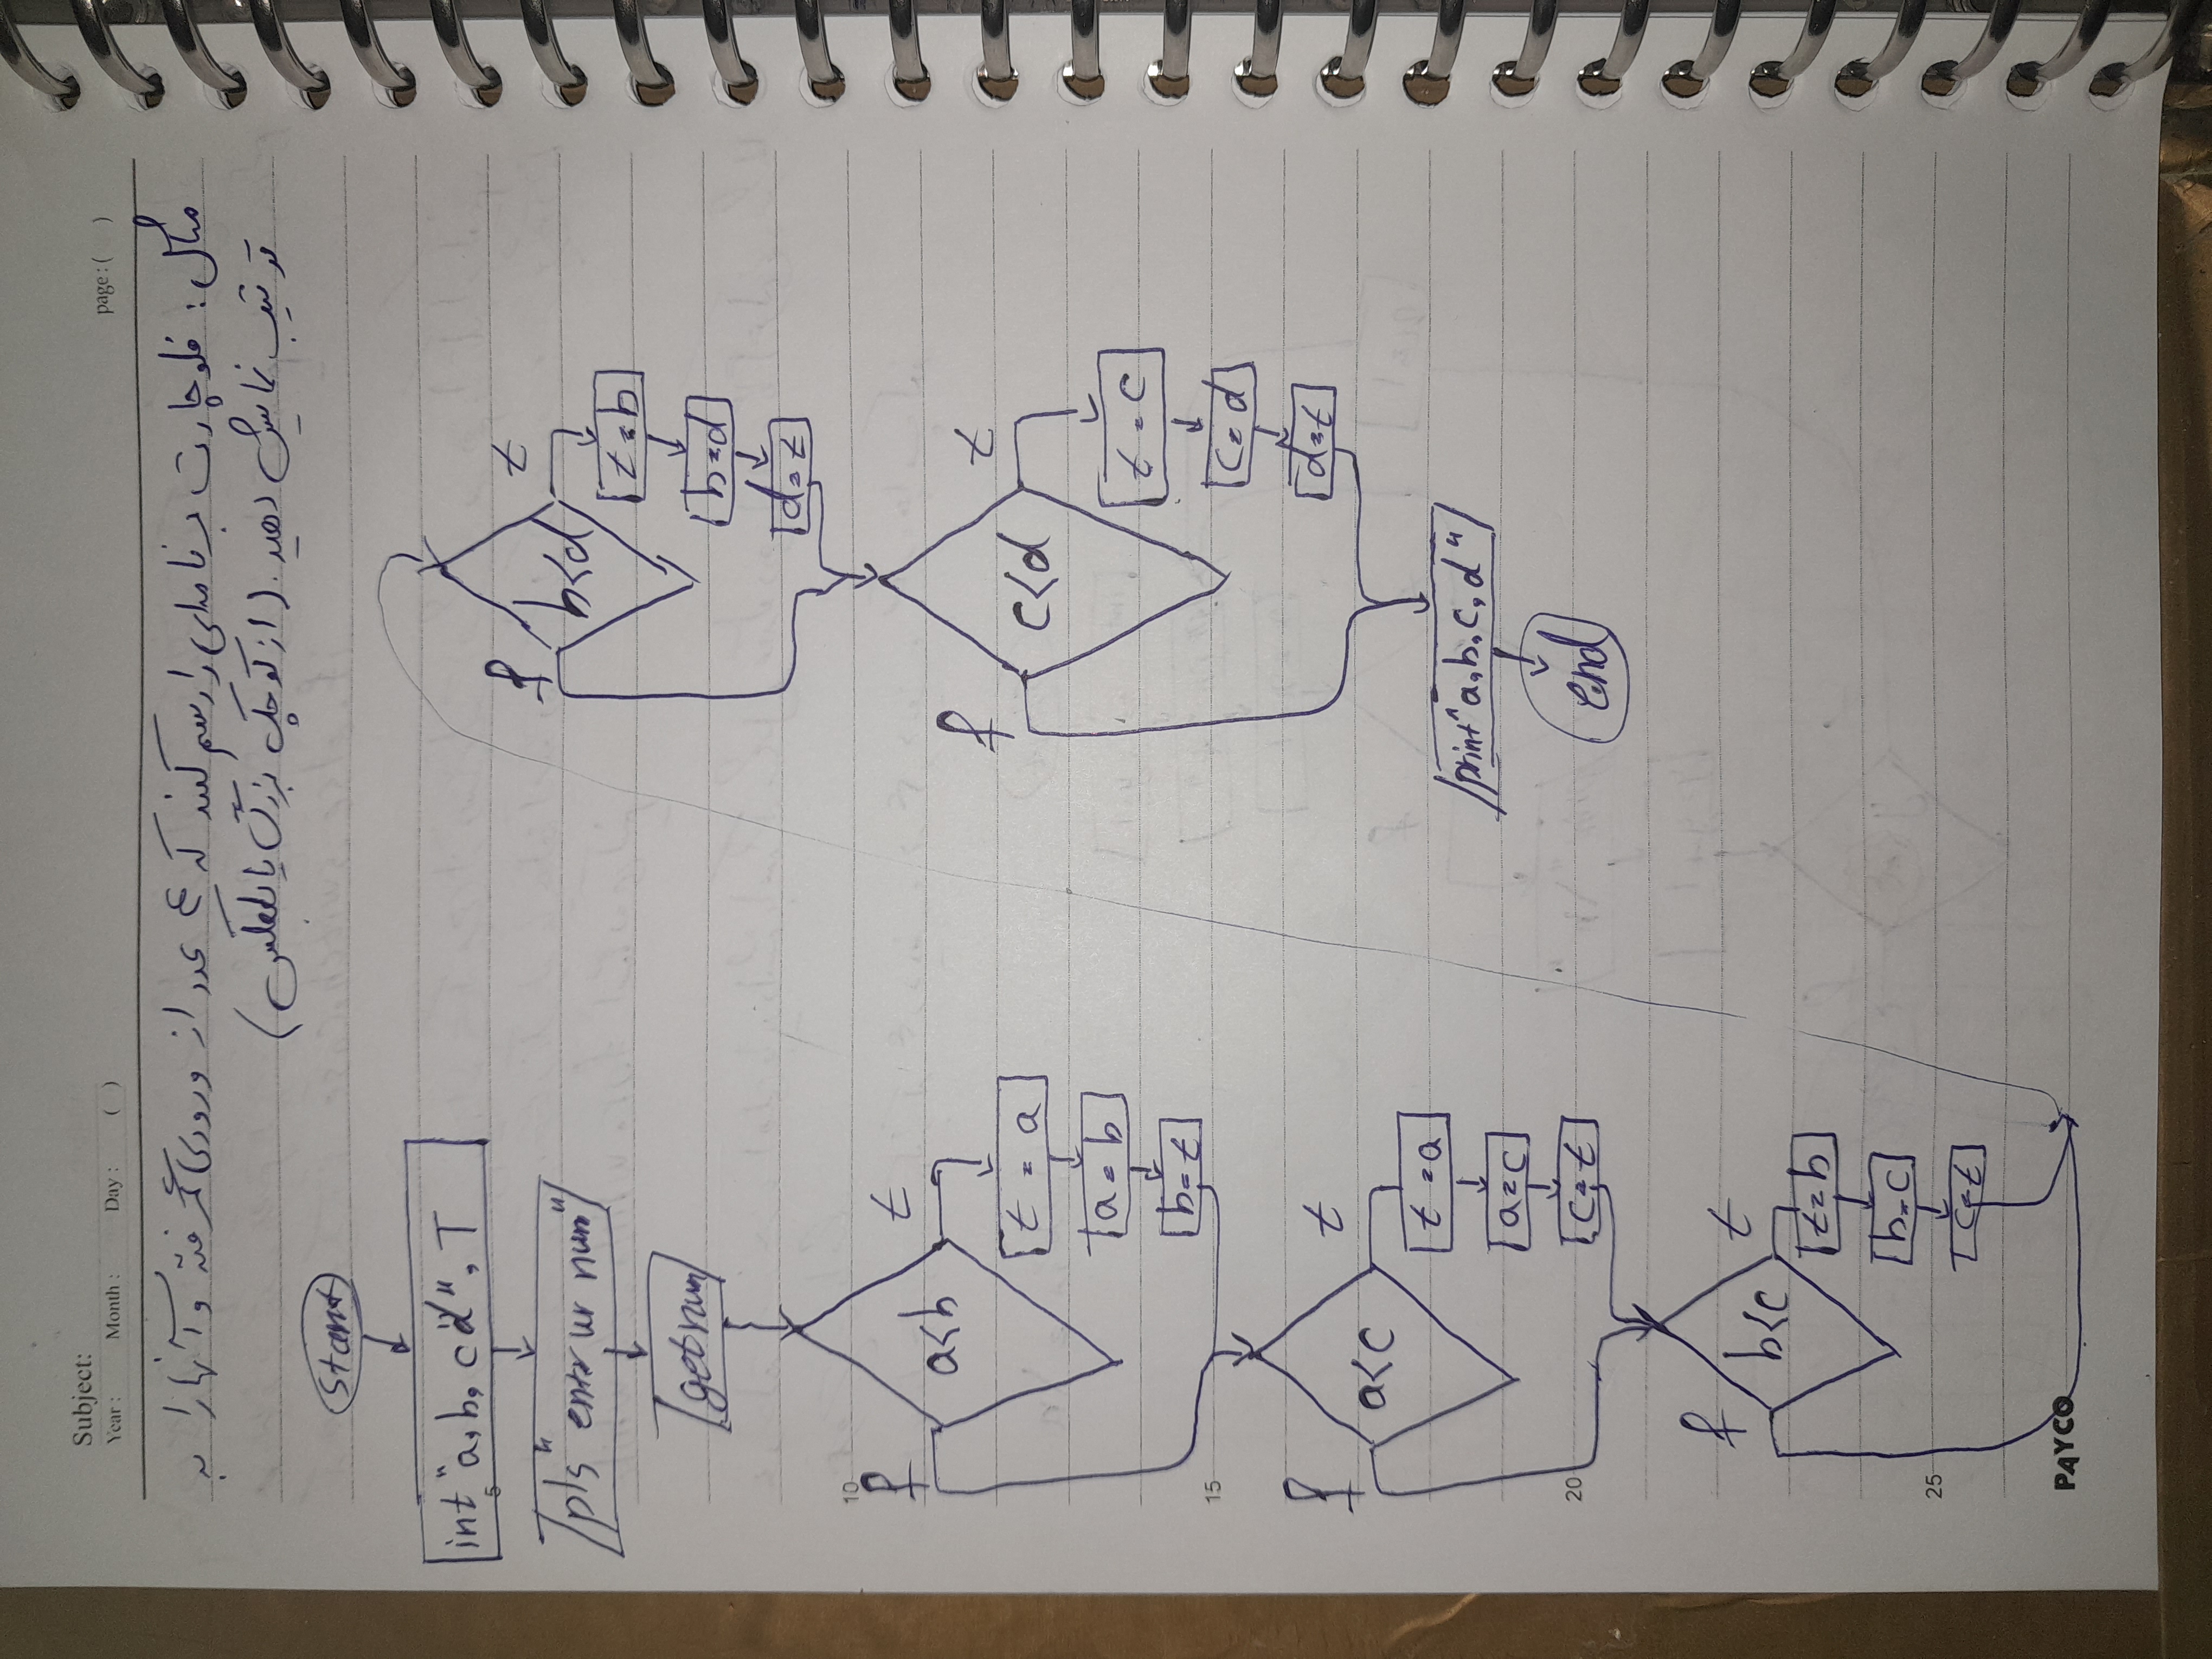 Subject:
Year: Month: Day: ( ) page:( )
مثال: فلوچارت برنامه‌ای را رسم کنید که ۴ عدد از ورودی گرفته و آنها را به
ترتیب نمایش دهید. (از کوچک بزرگ یا بالعکس)
start
int "a, b, c d", T
pls" enter ur num"
get num
a<b
f
t
t = a
a = b
b = t
a<c
f
t
t = a
a = c
c = t
b<c
f
t
t = b
b = c
c = t
b<d
f
t
t = b
b = d
d = t
c<d
f
t
t = c
c = d
d = t
print "a, b, c, d"
end
5
10
15
20
25
PAYCO